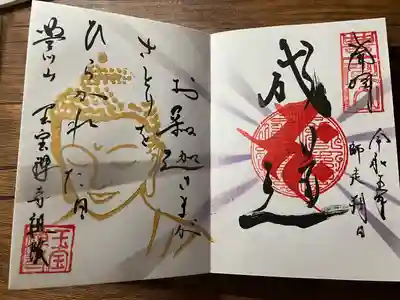 奉拝
成道
令和五年
師走朔日
お釈迦さまが
さとりを
ひらかれた日
玉宝禅寺